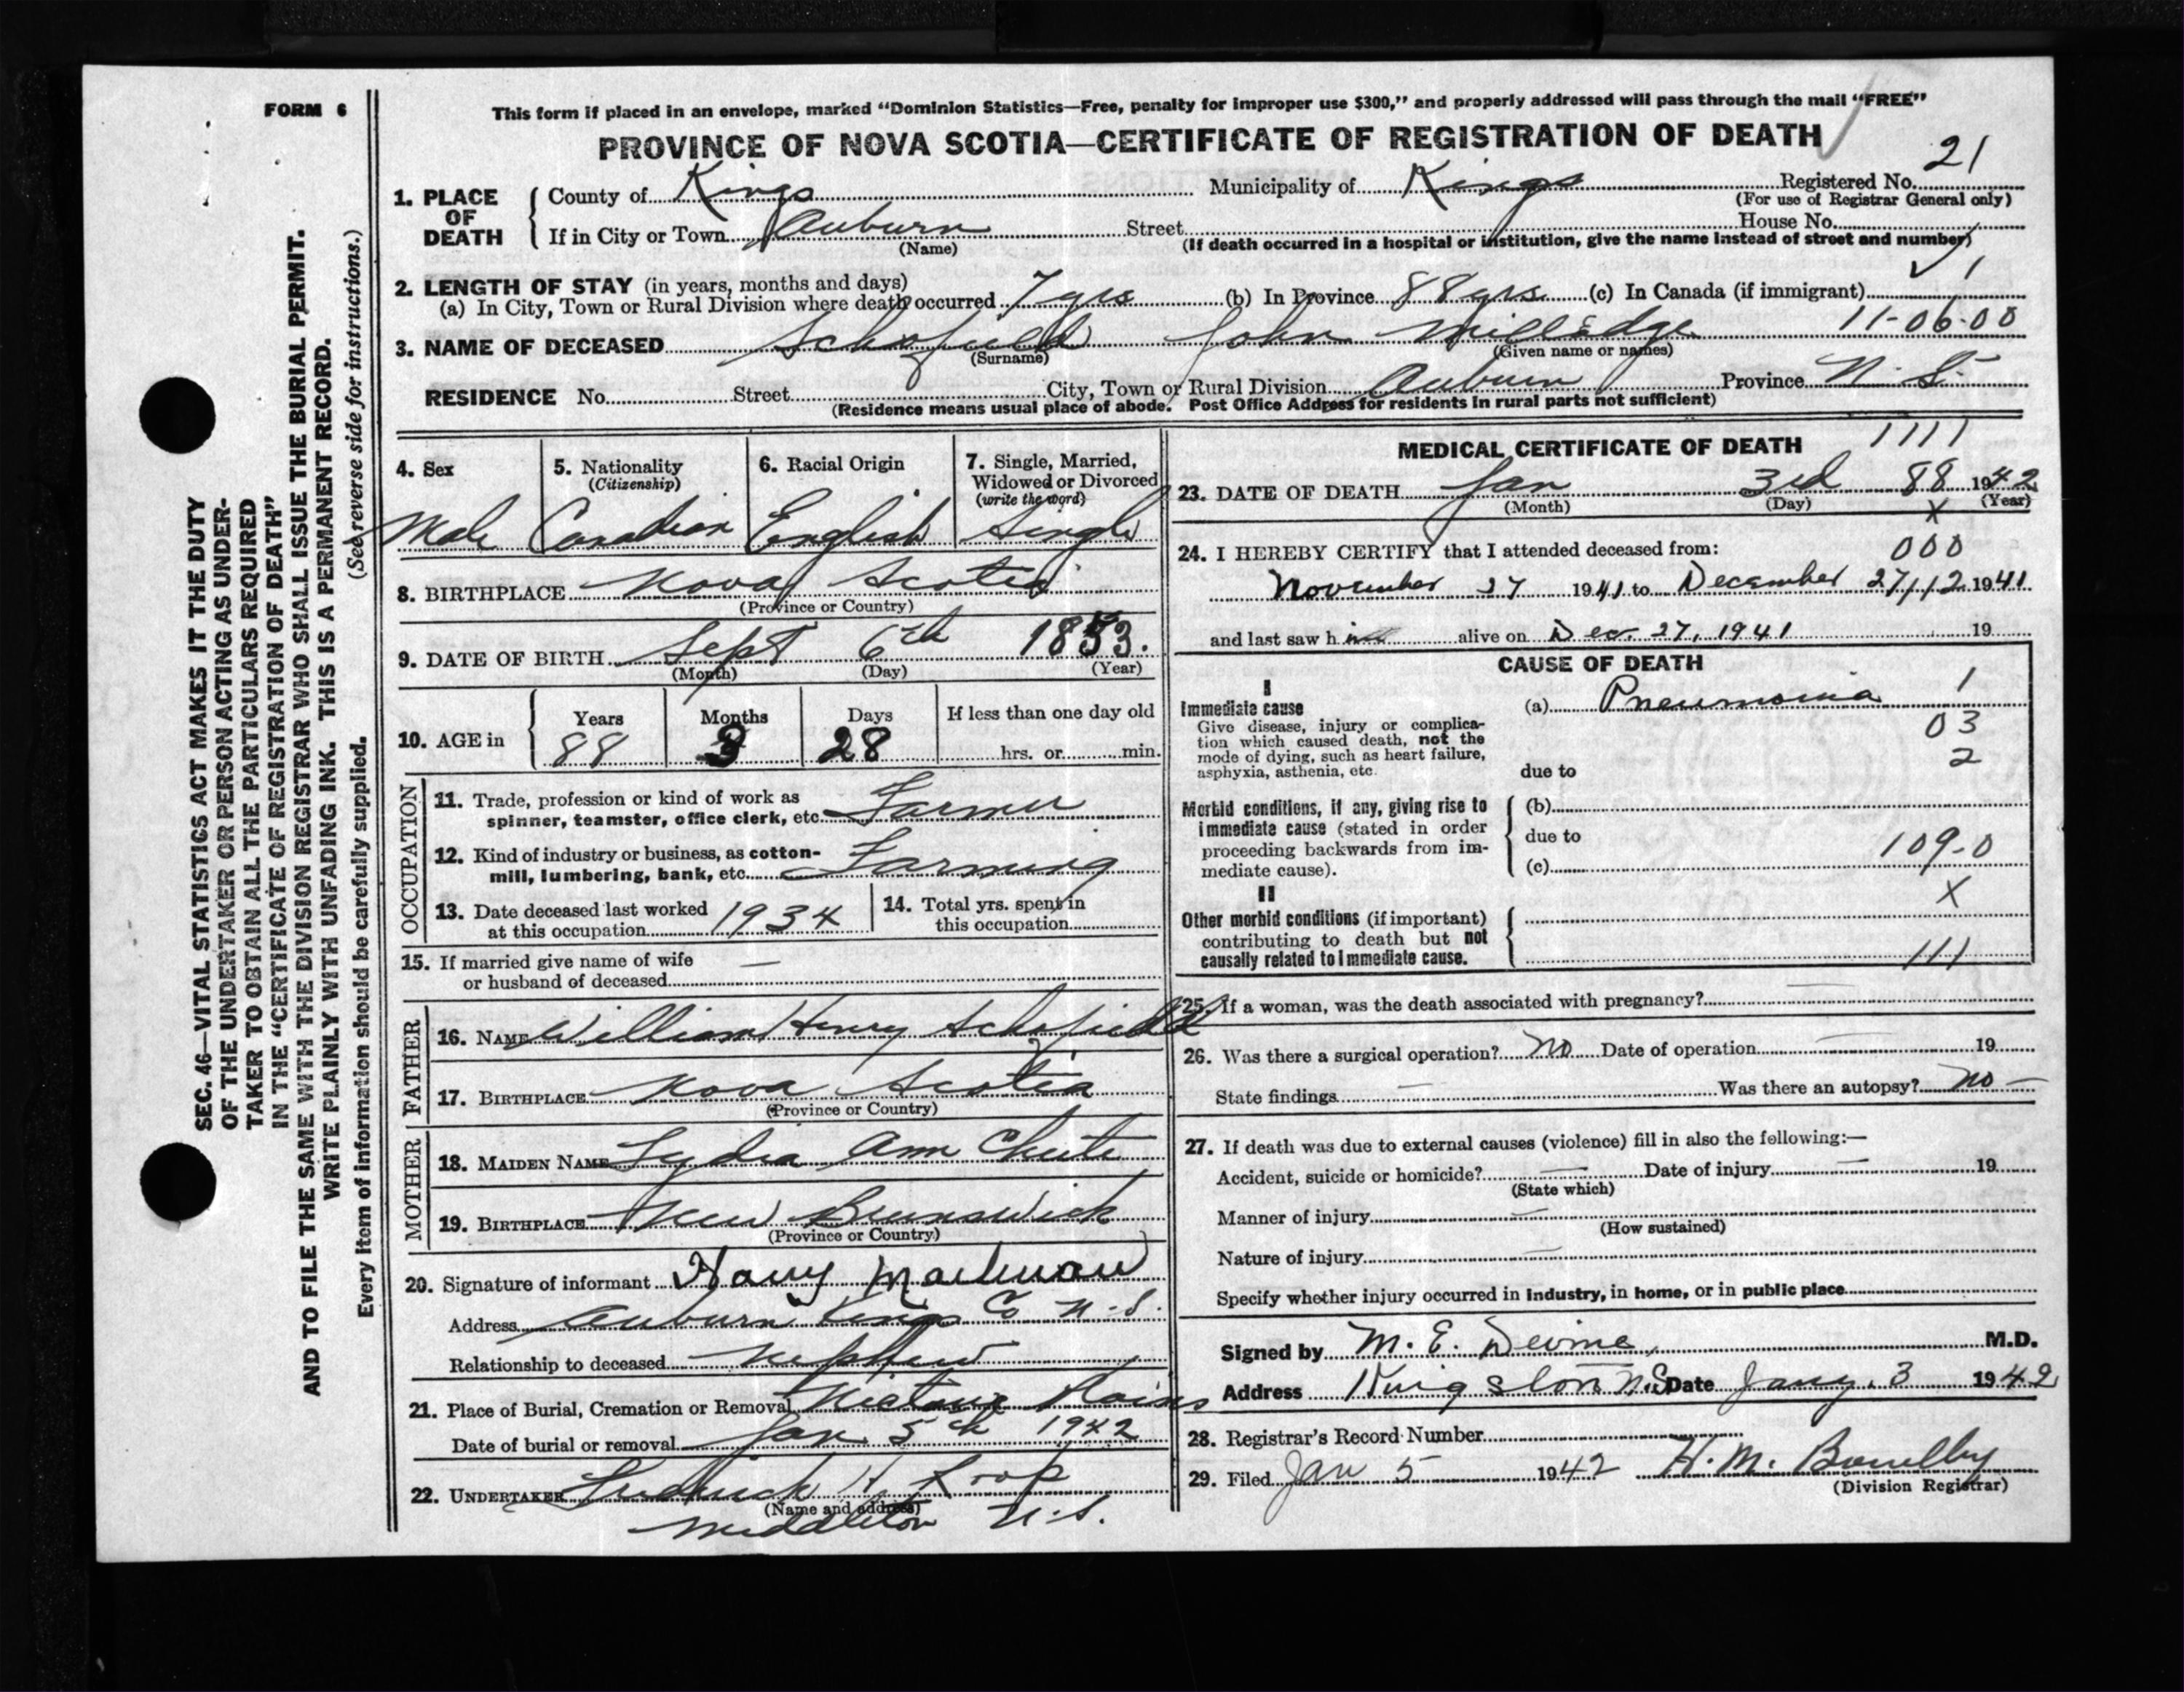 FORM 6
This form if placed in an envelope, marked "Dominion Statistics—Free, penalty for improper use $300," and properly addressed will pass through the mail "FREE"
PROVINCE OF NOVA SCOTIA—CERTIFICATE OF REGISTRATION OF DEATH
SEC. 46—VITAL STATISTICS ACT MAKES IT THE DUTY
OF THE UNDERTAKER OR PERSON ACTING AS UNDER-
TAKER TO OBTAIN ALL THE PARTICULARS REQUIRED
IN THE "CERTIFICATE OF REGISTRATION OF DEATH"
AND TO FILE THE SAME WITH THE DIVISION REGISTRAR WHO SHALL ISSUE THE BURIAL PERMIT.
WRITE PLAINLY WITH UNFADING INK. THIS IS A PERMANENT RECORD.
Every item of information should be carefully supplied. (See reverse side for instructions.)
1. PLACE OF DEATH
County of Kings Municipality of Kings Registered No. 21
(For use of Registrar General only)
If in City or Town Auburn Street House No.
(Name) (If death occurred in a hospital or institution, give the name instead of street and number)
2. LENGTH OF STAY (in years, months and days) 1
(a) In City, Town or Rural Division where death occurred 7 yrs (b) In Province 88 yrs (c) In Canada (if immigrant)
3. NAME OF DECEASED Schofield John Milledge 11-06-00
(Surname) (Given name or names)
RESIDENCE No. Street City, Town or Rural Division Auburn Province N. S.
(Residence means usual place of abode. Post Office Address for residents in rural parts not sufficient)
4. Sex
Male
5. Nationality
(Citizenship)
Canadian
6. Racial Origin
English
7. Single, Married,
Widowed or Divorced
(write the word)
Single
8. BIRTHPLACE Nova Scotia
(Province or Country)
9. DATE OF BIRTH Sept 6th 1853.
(Month) (Day) (Year)
10. AGE in
Years Months Days If less than one day old
88 3 28 hrs. or min.
OCCUPATION
11. Trade, profession or kind of work as
spinner, teamster, office clerk, etc. Farmer
12. Kind of industry or business, as cotton-
mill, lumbering, bank, etc. Farming
13. Date deceased last worked
at this occupation 1934
14. Total yrs. spent in
this occupation
15. If married give name of wife
or husband of deceased —
FATHER
16. NAME William Henry Schofield
17. BIRTHPLACE Nova Scotia
(Province or Country)
MOTHER
18. MAIDEN NAME Lydia Ann Chute
19. BIRTHPLACE New Brunswick
(Province or Country)
20. Signature of informant Harry
Address Auburn Kings Co N.S.
Relationship to deceased Nephew
21. Place of Burial, Cremation or Removal Nictaux Plains
Date of burial or removal Jan 5th 1942
22. UNDERTAKER Fredrick H. Roop
(Name and address)
Middleton N.S.
MEDICAL CERTIFICATE OF DEATH 1111
23. DATE OF DEATH Jan 3rd 88 1942
(Month) (Day) (Year)
X
24. I HEREBY CERTIFY that I attended deceased from: 000
November 27 1941 to December 27/12 1941
and last saw him alive on Dec. 27, 1941 19
CAUSE OF DEATH
I
Immediate cause
Give disease, injury or complica-
tion which caused death, not the
mode of dying, such as heart failure,
asphyxia, asthenia, etc.
(a) Pneumonia 1
03
2
due to
Morbid conditions, if any, giving rise to
immediate cause (stated in order
proceeding backwards from im-
mediate cause).
(b)
due to
109-0
(c)
X
II
Other morbid conditions (if important)
contributing to death but not
causally related to immediate cause.
111
25. If a woman, was the death associated with pregnancy? —
26. Was there a surgical operation? No Date of operation — 19
State findings — Was there an autopsy? No —
27. If death was due to external causes (violence) fill in also the following:—
Accident, suicide or homicide? — Date of injury — 19
(State which)
Manner of injury —
(How sustained)
Nature of injury —
Specify whether injury occurred in industry, in home, or in public place
Signed by M. E. Devine, M.D.
Address Kingston N.S. Date Jany. 3 1942
28. Registrar's Record Number
29. Filed Jan 5 1942 H. M.
(Division Registrar)